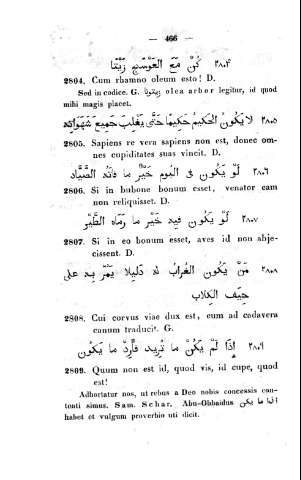 — 466 —
٢٨٠٤ كُنْ مَعَ العَوْسَجِ زَيْتًا
2804. Cum rhamno oleum esto! D.
Sed in codice. G. زيتونا olea arbor legitur, id quod
mihi magis placet.
٢٨٠٥ لا يَكُونُ الحَكِيمُ حَكِيمًا حَتَّى يَغْلِبَ جَمِيعَ شَهَوَاتِهِ
2805. Sapiens re vera sapiens non est, donec om-
nes cupiditates suas vincit. D.
٢٨٠٦ لَوْ يَكُونُ فِي البُومِ خَيْرٌ مَا فَاتَهُ الصَّيَّادُ
2806. Si in bubone bonum esset, venator eam
non reliquisset. D.
٢٨٠٧ لَوْ يَكُونُ فِيهِ خَيْرٌ مَا رَمَاهُ الطَّيْرُ
2807. Si in eo bonum esset, aves id non abje-
cissent. D.
٢٨٠٨ مَنْ يَكُونُ الغُرَابُ لَهُ دَلِيلًا يَمُرُّ بِهِ عَلَى
جِيَفِ الكِلَابِ
2808. Cui corvus viae dux est, eum ad cadavera
canum traducit. G.
٢٨٠٩ إِذَا لَمْ يَكُنْ مَا تُرِيدُ فَأَرِدْ مَا يَكُونُ
2809. Quum non est id, quod vis, id cupe, quod
est!
Adhortatur nos, ut rebus a Deo nobis concessis con-
tenti simus. Sam. Schar. Abu-Obbaidus اذا ما يكن
habet et vulgum proverbio uti dicit.